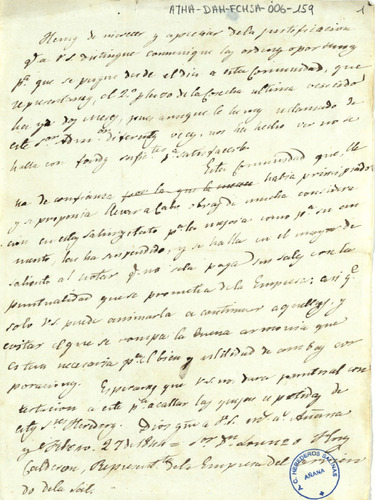 ATHA-DAH-FCHSA-006-159
1
Hemos de merecer y apreciar de la justificacion
q.e a V.S. distingue comunique las ordenes oportunas
p.a que se pague desde el dia a esta Comunidad, que
representamos, el 2.o plazo de la Cosecha ultima vencido
ha ya dos meses, pues aunque le hemos reclamado de
este Sor. Admor. diferentes veces, nos ha hecho ver no se
halla con fondos suficientes p.a satisfacerlo.
Esta Comunidad que, lle
na de confianza por la que le merece había principiado
y se proponia llevar a cabo obras de mucha considera
cion en estas Salinas, tanto p.a la mejora como p.a su au
mento, las ha suspendido, y se halla en el mayor de
saliento al notar q.e no se la paga sus sales con la
puntualidad que se prometia de la Empresa; asi q.e
solo V.S. puede animarla a continuar aquellas, y
evitar el que se rompa la buena armonia que
es tan necesaria p.a el bien y utilidad de ambas cor
poraciones. Esperamos que V.S. nos dara puntual con
testacion a este p.a acallar las quejas repetidas de
estos S.res Herederos. Dios gue a V.S. m.s a.s Añana
y Febrero 27 de 1844 = Sor. Dn. Lorenzo Flores
Calderon, Represent.te de la Empresa del
do de la Sal.
C. HEREDEROS SALINAS
AÑANA